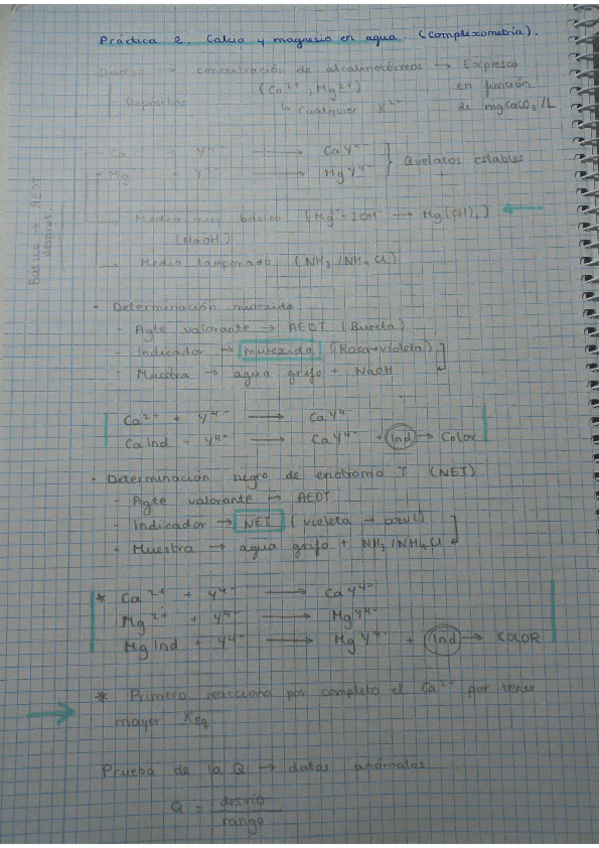 Práctica 2. Calcio y magnesio en agua. (Complexometría).
Dureza → concentración de alcalinotérreos → Expresa
(Ca²⁺, Mg²⁺) en función
Depósitos ↳ Cualquier X²⁺ de mgCaCO₃/L
Ca + Y⁴⁻ → CaY⁴⁻
Mg + Y⁴⁻ → MgY⁴⁻ } Quelatos estables
Básico → AEDT
→ Medio muy básico (Mg + 2OH⁻ → Mg(OH)₂) ←
(NaOH)
→ Medio tamponado (NH₃/NH₄Cl)
• Determinación murexida
- Agte valorante → AEDT (Bureta)
- Indicador → murexida (Rosa→violeta)
- Muestra → agua grifo + NaOH
Ca²⁺ + Y⁴⁻ → CaY⁴⁻
CaInd + Y⁴⁻ → CaY⁴⁻ + Ind → Color
• Determinación negro de eriocromo T (NET)
- Agte valorante → AEDT
- Indicador → NET (violeta → azul)
- Muestra → agua grifo + NH₃/NH₄Cl
* Ca²⁺ + Y⁴⁻ → CaY⁴⁻
Mg²⁺ + Y⁴⁻ → MgY⁴⁻
MgInd + Y⁴⁻ → MgY⁴⁻ + Ind → COLOR
* Primero reacciona por completo el Ca²⁺ por tener
mayor Keq
Prueba de la Q → datos anómalos
Q = desvío
rango